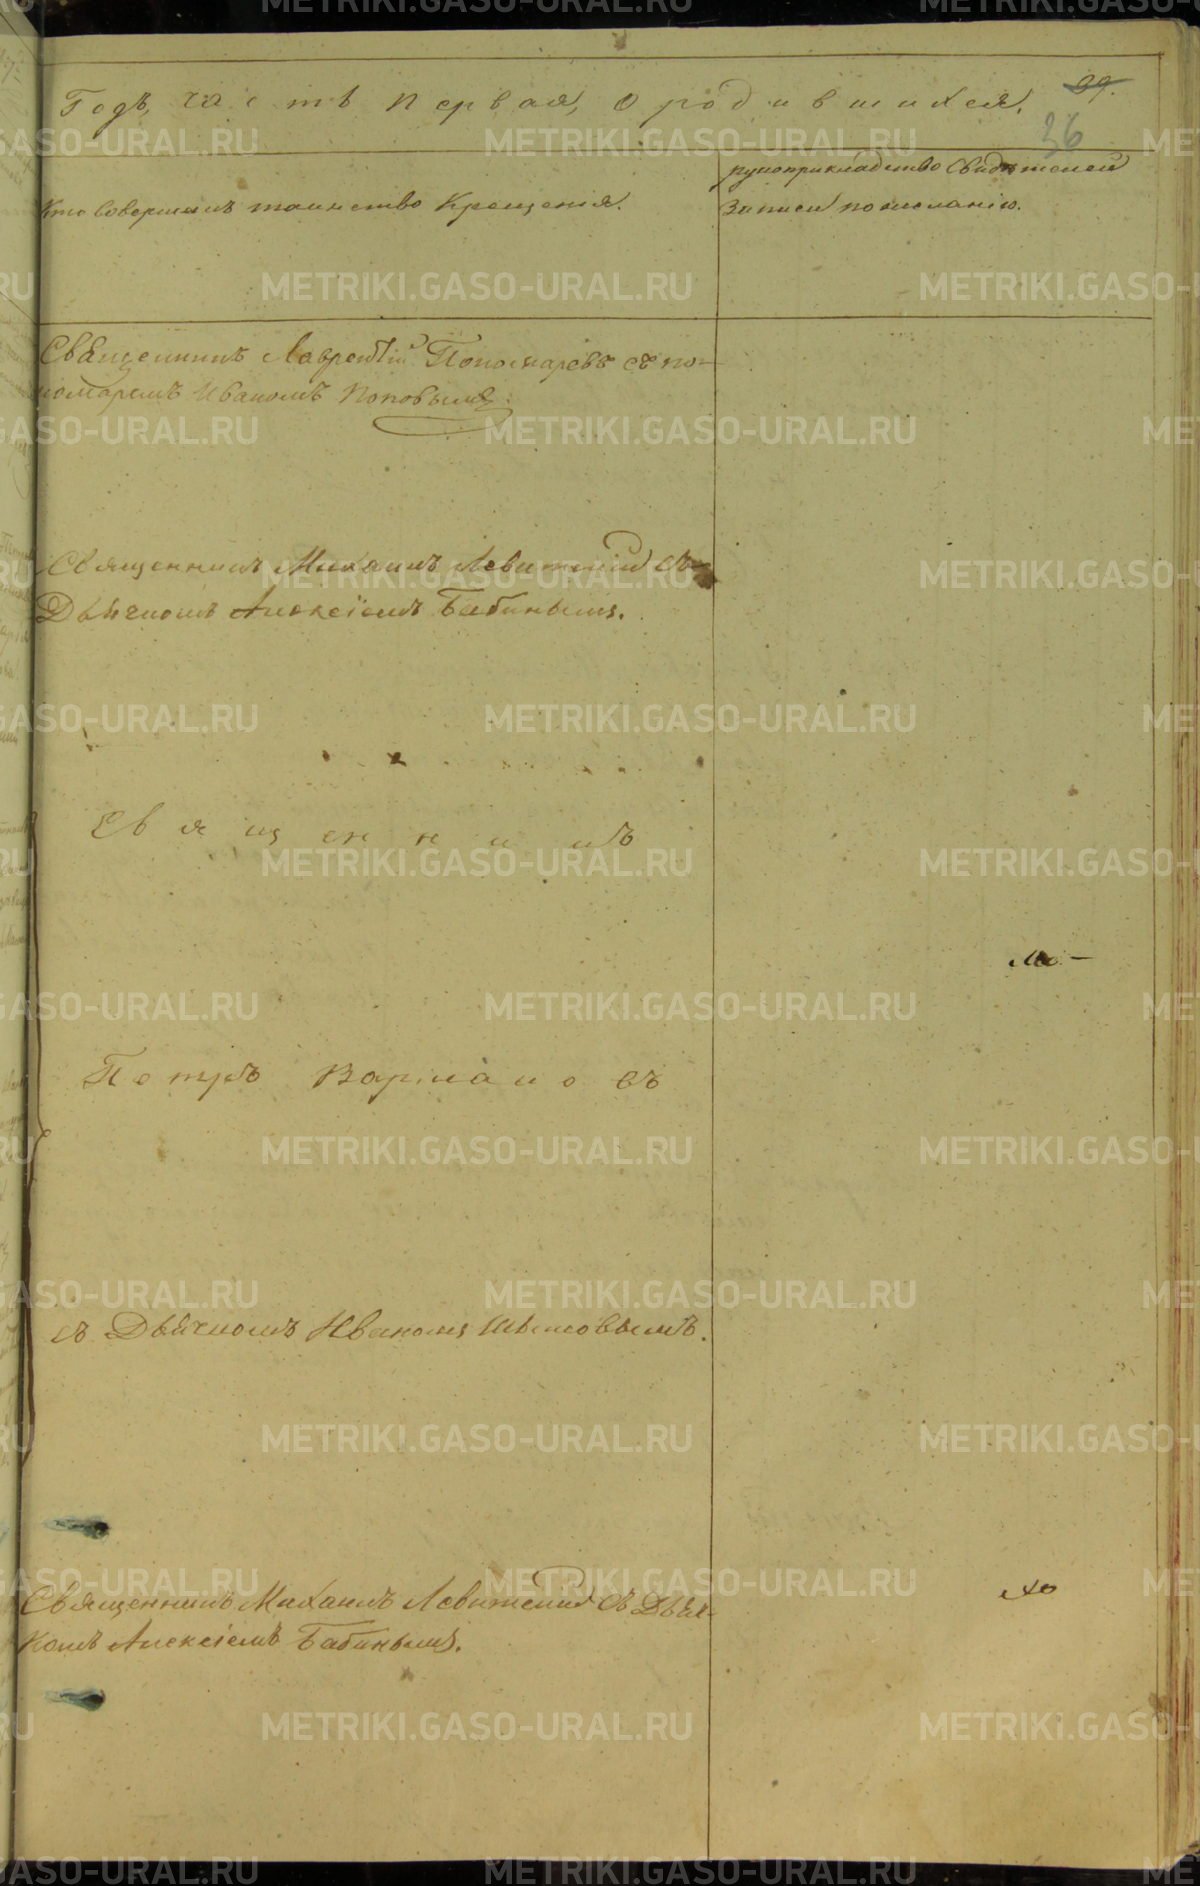 Годъ, часть первая, о родившихся.
99.
36
Кто совершалъ таинство Крещенія.
рукоприкладство свидѣтелей
записи по желанію.
Священникъ Лаврентій Пономаревъ съ по-
номаремъ Иваномъ Поповымъ.
Священникъ Михаилъ Левитскій съ
Дьячкомъ Алексіемъ Бабинымъ.
Священникъ
Петръ
съ Дьячкомъ Иваномъ
Священникъ Михаилъ Левитскій съ Дьяч-
комъ Алексіемъ Бабинымъ.
METRIKI.GASO-URAL.RU